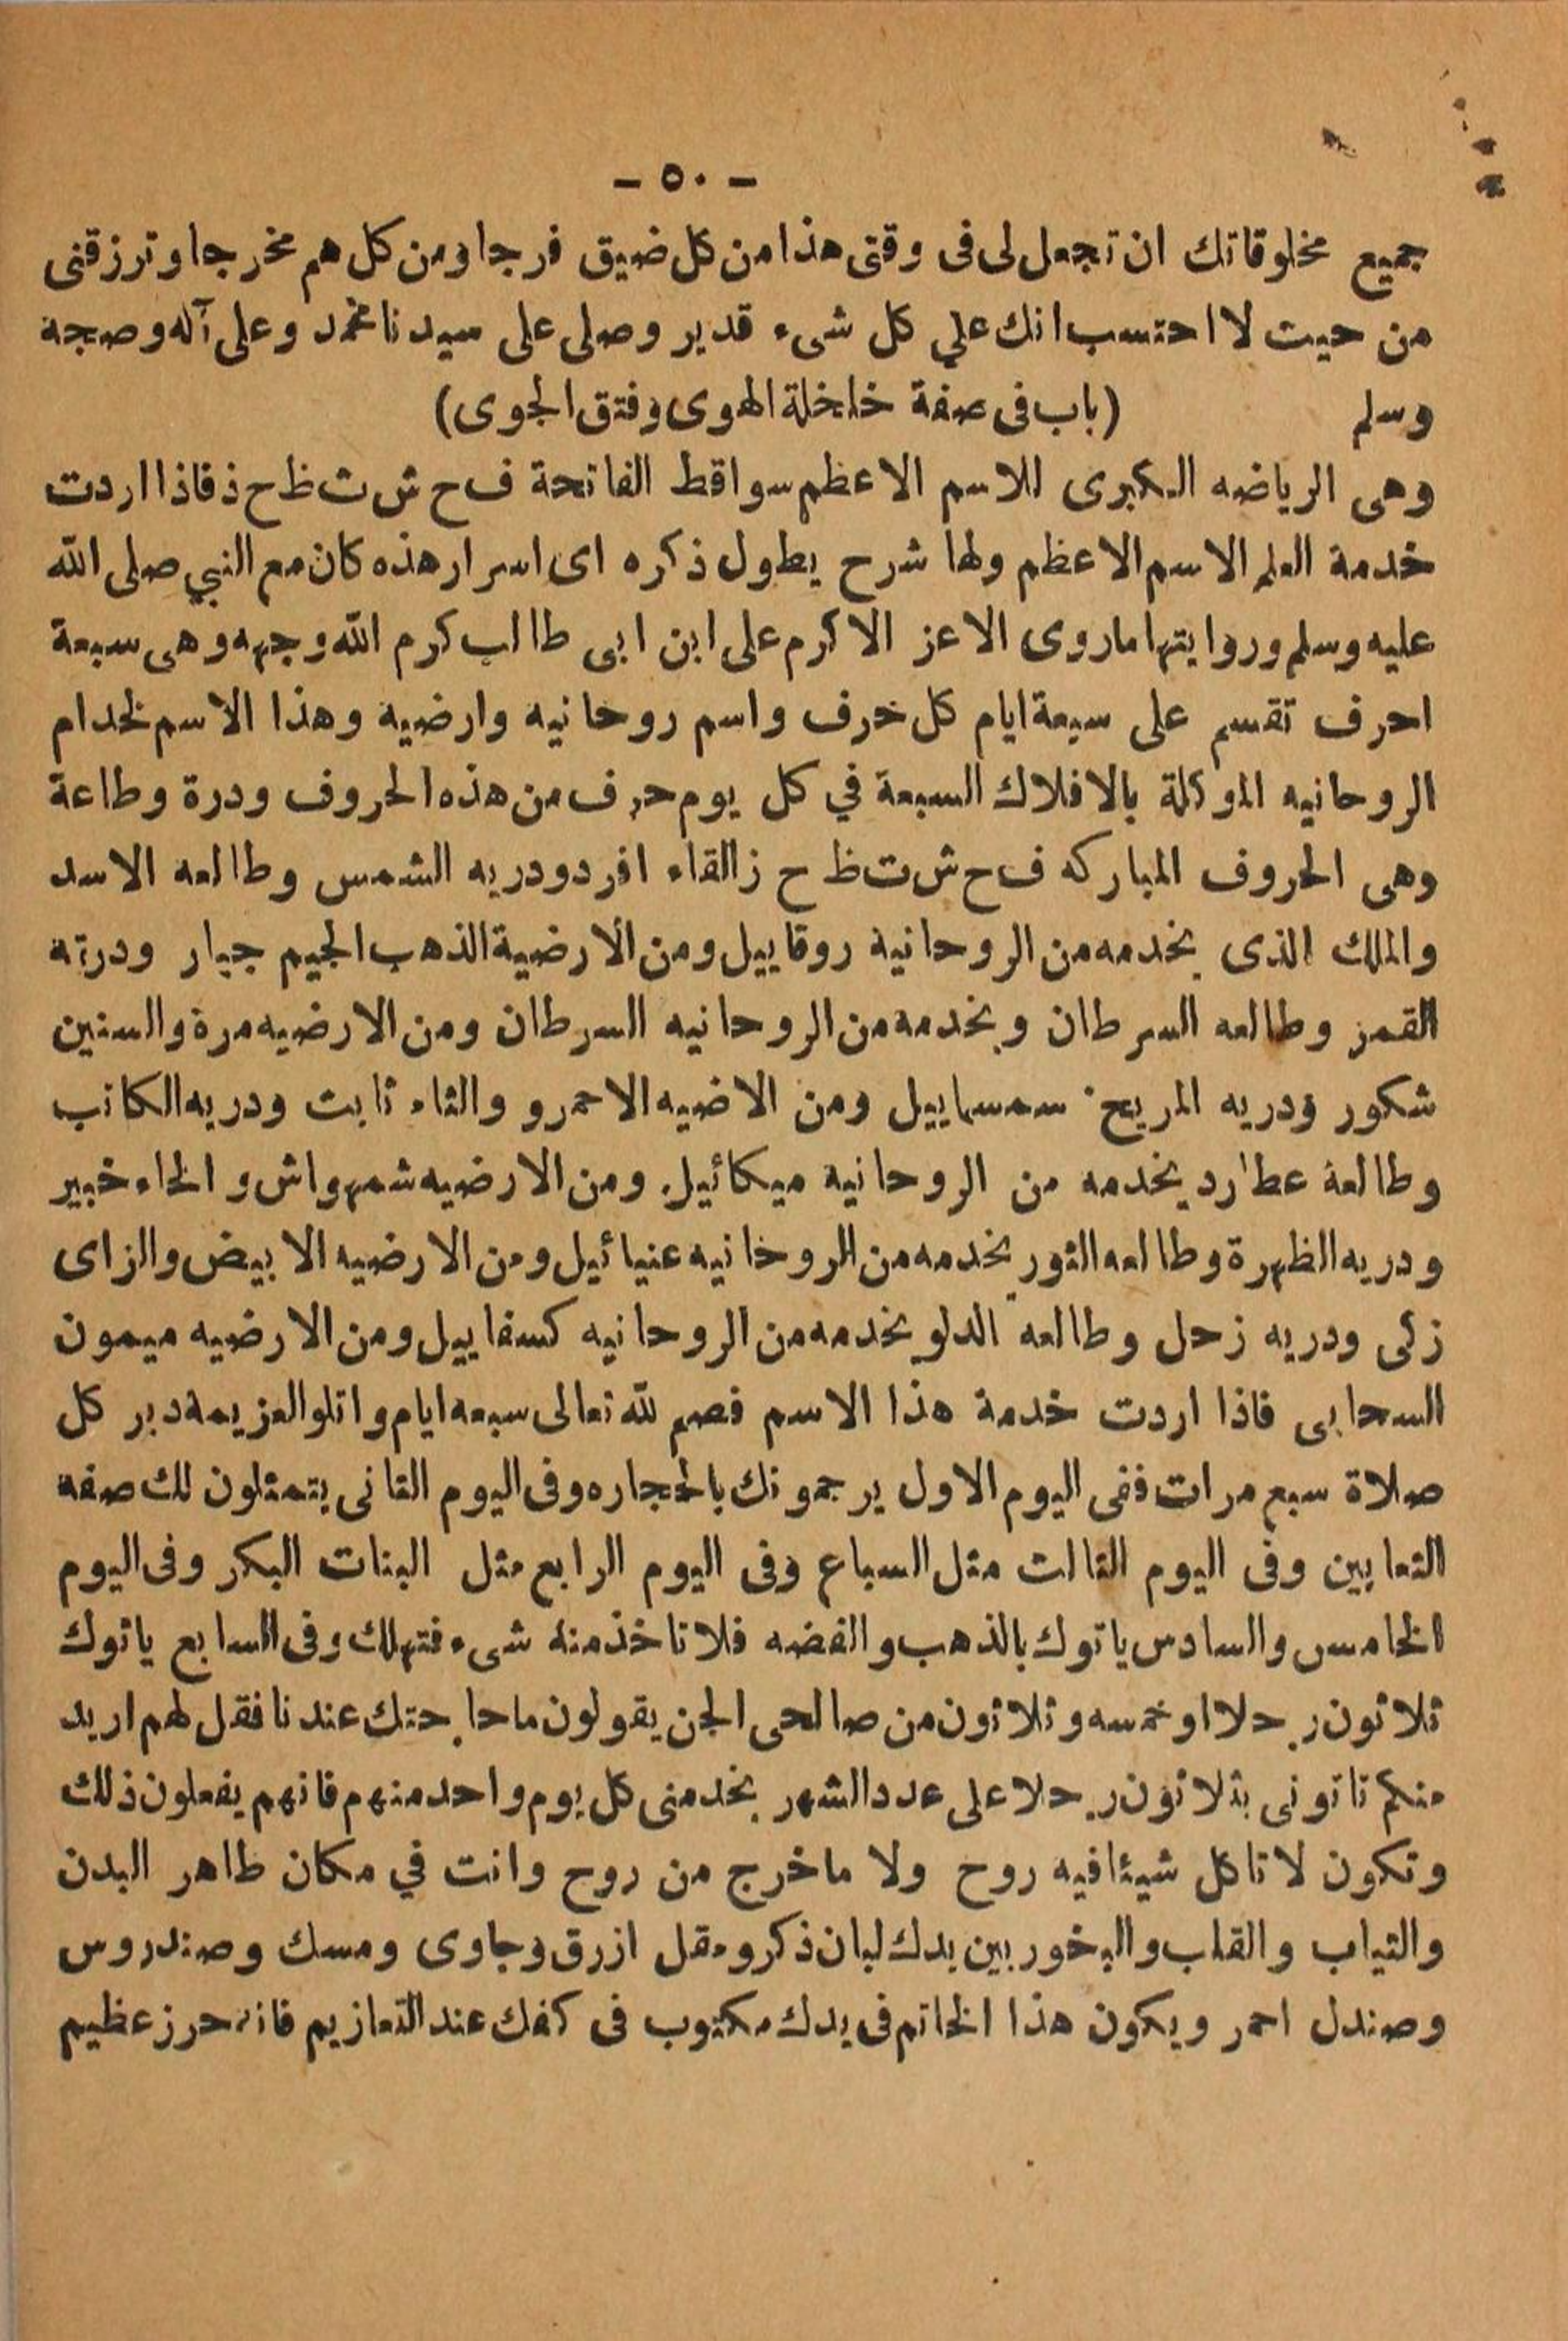 - ٥٠ -
جميع مخلوقاتك ان تجعل لى فى وقتى هذا من كل ضيق فرجا ومن كل هم مخرجا وترزقنى
من حيت لا احتسب انك علي كل شىء قدير وصلى على سيدنا محمد وعلى آله وصجة
وسلم (باب فى صفة خلخلة الهوى وفتق الجوى)
وهى الرياضه الكبرى للاسم الاعظم سواقط الفاتحة ف ح ش ث ظ ح ذ فاذا اردت
خدمة العلم الاسم الاعظم ولها شرح يطول ذكره اى اسرار هذه كان مع النبي صلى الله
عليه وسلم وروايتها ماروى الاعز الاكرم على ابن ابى طالب كرم الله وجهه وهى سبعة
احرف تقسم على سبعة ايام كل خرف واسم روحانيه وارضيه وهذا الاسم لخدام
الروحانيه الموكلة بالافلاك السبعة في كل يوم حرف من هذه الحروف ودرة وطاعة
وهى الحروف المباركه ف ح ش ت ظ ح ز القاء افرد ودريه الشمس وطالعه الاسد
والملك الذى يخدمه من الروحانية روقاييل ومن الارضية الذهب الجيم جبار ودرته
القمز وطالعه السرطان وبخدمة من الروحانيه السرطان ومن الارضيه مرة والسنين
شكور ودريه المريح سمسماييل ومن الاضيه الاحمرو والثاء ثابت ودريه الكانب
وطالعة عطارد يخدمه من الروحانية ميكائيل ومن الارضيه شمهواش و الخاء خبير
ودريه الظهرة وطالعه الثور يخدمه من الروخانيه عنيائيل ومن الارضيه الابيض والزاى
زكى ودريه زحل وطالعه الدلو يخدمه من الروحانيه كسفاييل ومن الارضيه ميمون
السحابى فاذا اردت خدمة هذا الاسم فصم لله تعالى سبعه ايام واتلو العزيمة دبر كل
صلاة سبع مرات ففى اليوم الاول يرجمونك بالحجاره وفى اليوم الثانى يتمثلون لك صفه
الثعابين وفى اليوم الثالث مثل السباع وفى اليوم الرابع مثل البنات البكر وفى اليوم
الخامس والسادس ياتوك بالذهب والفضه فلا تاخذ منه شىء فتهلك وفى السابع ياتوك
ثلاثون رجلا او خمسه وثلاثون من صالحى الجن يقولون ماحاجتك عندنا فقل لهم اريد
منكم تاتونى بثلاثون رجلا على عدد الشهر يخدمنى كل يوم واحد منهم فانهم يفعلون ذلك
وتكون لا تاكل شيئا فيه روح ولا ماخرج من روح وانت في مكان طاهر البدن
والثياب والقلب والبخور بين يدك لبان ذكر ومقل ازرق وجاوى ومسك وصندروس
وصندل احمر ويكون هذا الخاتم فى يدك مكتوب فى كفك عند التعازيم فانه حرز عظيم